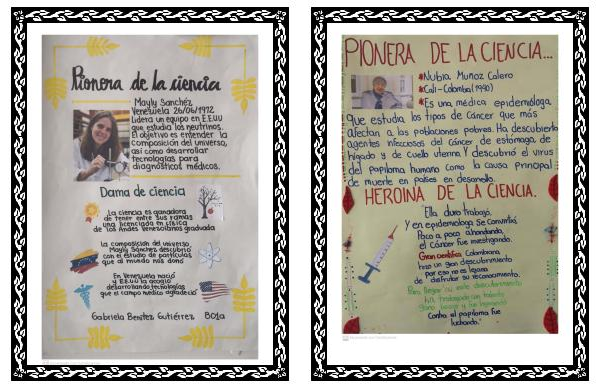 Pionera de la ciencia
Mayly Sanchéz
Venezuela 26/06/1972
Lidera un equipo en E.E.U.U
que estudia los neutrinos.
El objetivo es entender la
composición del universo,
así como desarrollar
tecnologías para
diagnósticos médicos.
Dama de ciencia
La ciencia es ganadora
de tener entre sus ramas
una licenciada en física
de los Andes Venezolanos graduada
La composición del universo
Mayly Sanchéz descubrió
con el estudio de partículas
que al mundo nos donó
En Venezuela nació
y E.E.U.U la acogió
desarrollando tecnologías
que el campo médico agradeció
Gabriela Benítez Gutiérrez 801a
PIONERA DE LA CIENCIA...
*Nubia Muñoz Calero
*Cali-Colombia (1940)
*Es una médica epidemióloga
que estudia los tipos de Cáncer que más
afectan a las poblaciones pobres. Ha descubierto
agentes infecciosos del Cáncer de estómago, de
hígado y de cuello uterino. Y descubrió el virus
del papiloma humano como la causa principal
de muerte en países en desarrollo.
HEROÍNA DE LA CIENCIA.
Ella duro trabajó
Y en epidemióloga Se Convirtió
Poco a poco ahondando,
el Cáncer fue investigando.
Gran Científica Colombiana,
hizo un gran descubrimiento
por eso no es lejana
de disfrutar su reconocimiento.
Para llegar a este descubrimiento
ha trabajado con talento
Contra el papiloma fue
luchando."